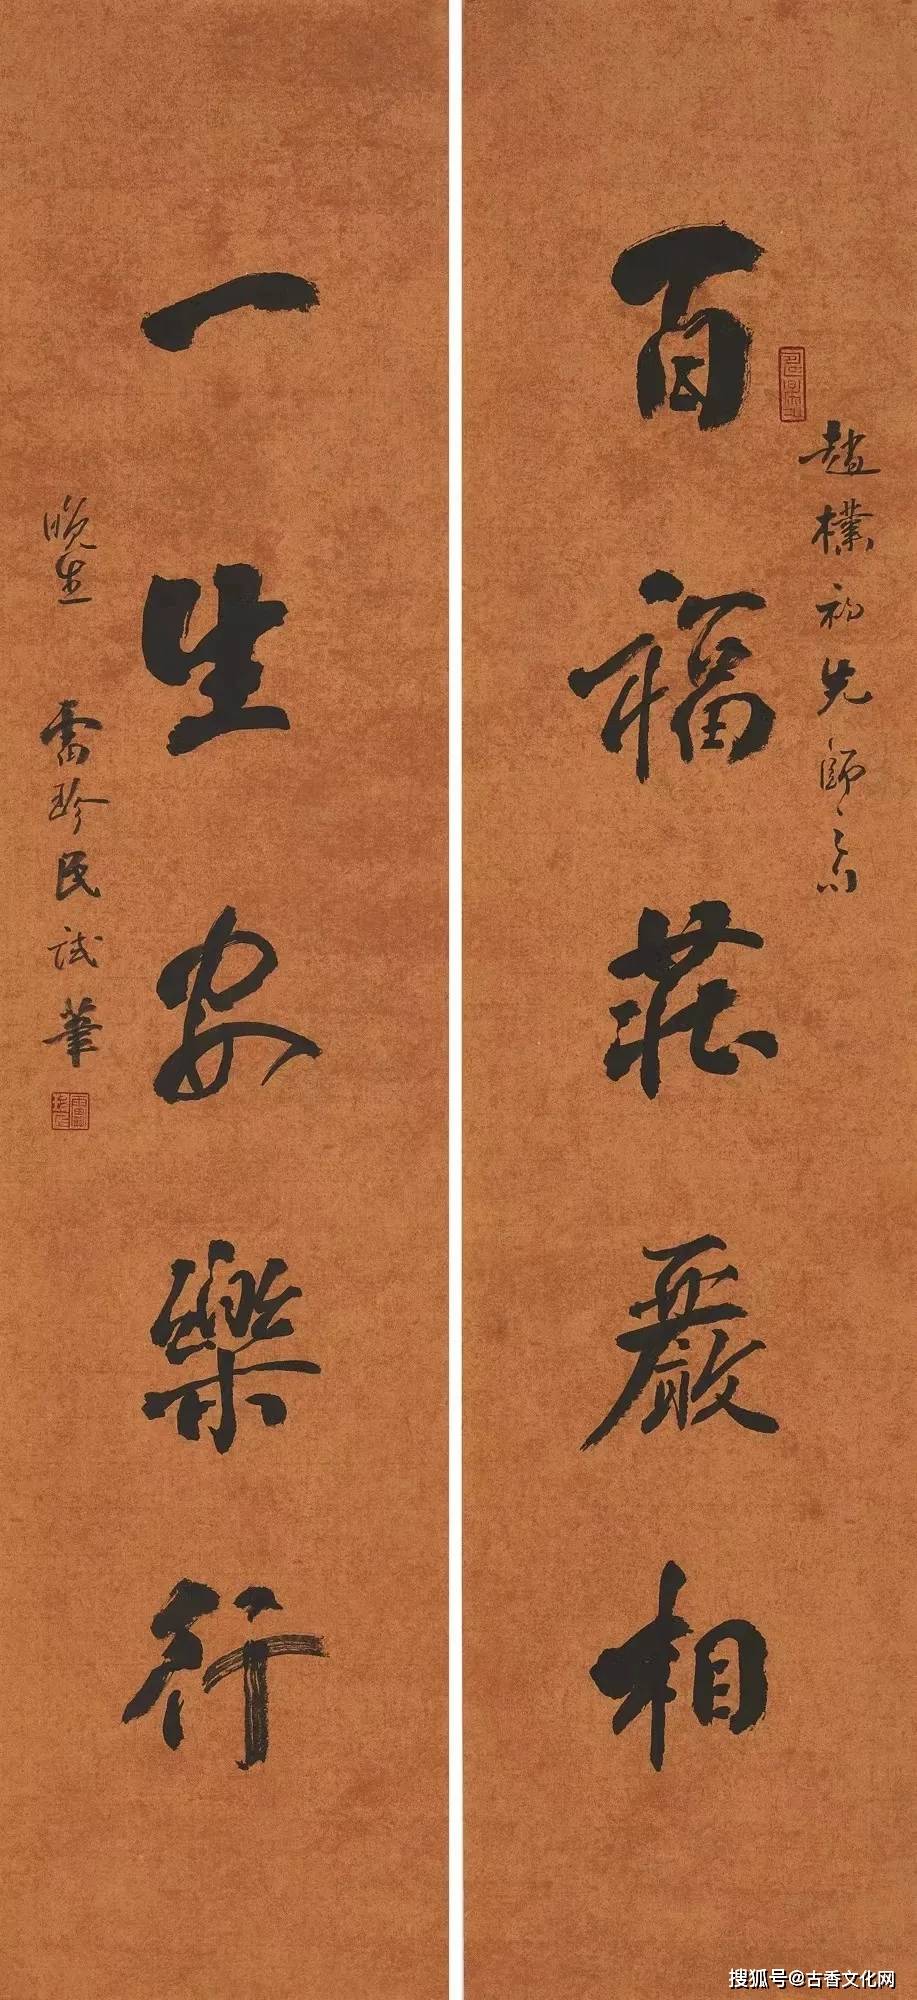 百福莊嚴相
趙樸初先師句
一生安樂行
晚生 雷珍民試筆
搜狐号@古香文化网